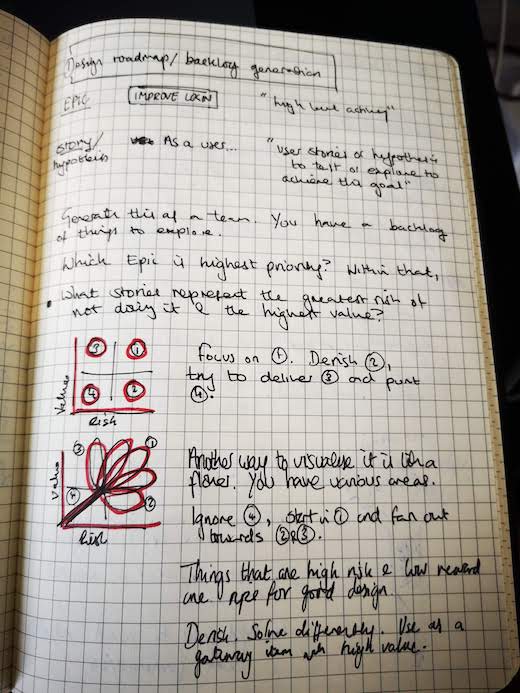 Design roadmap/ backlog generation
EPIC IMPROVE LOGIN "high level activity"
STORY/ hypothesis As a user... "User stories or hypothesis
to test or explore to
achieve this goal"
Generate this as a team. You have a backlog
of things to explore.
Which Epic is highest priority? Within that,
• What stories represent the greatest risk of
not doing it & the highest value?
Value
3 1
4 2
Risk
Focus on ①. Derisk ②,
try to deliver ③ and punt
④.
Value
3 1
4 2
Risk
Another way to visualise it is like a
flower. You have various areas.
Ignore ④, start in ① and fan out
towards ②&③.
Things that are high risk & low reward
are ripe for good design.
Derisk. Solve differently. Use as a
gateway item with high value.